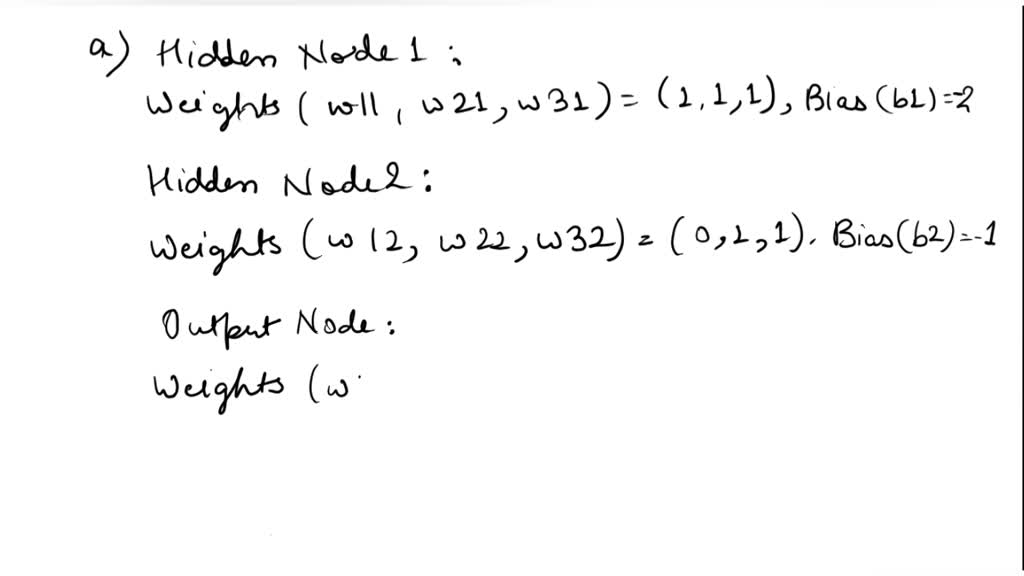 a) Hidden Node 1 :
Weights ( w11, w21, w31) = (1,1,1), Bias (b1) =-2
Hidden Node 2 :
Weights (w12, w22, w32) = (0,1,1). Bias(b2)=-1
Output Node :
Weights (w